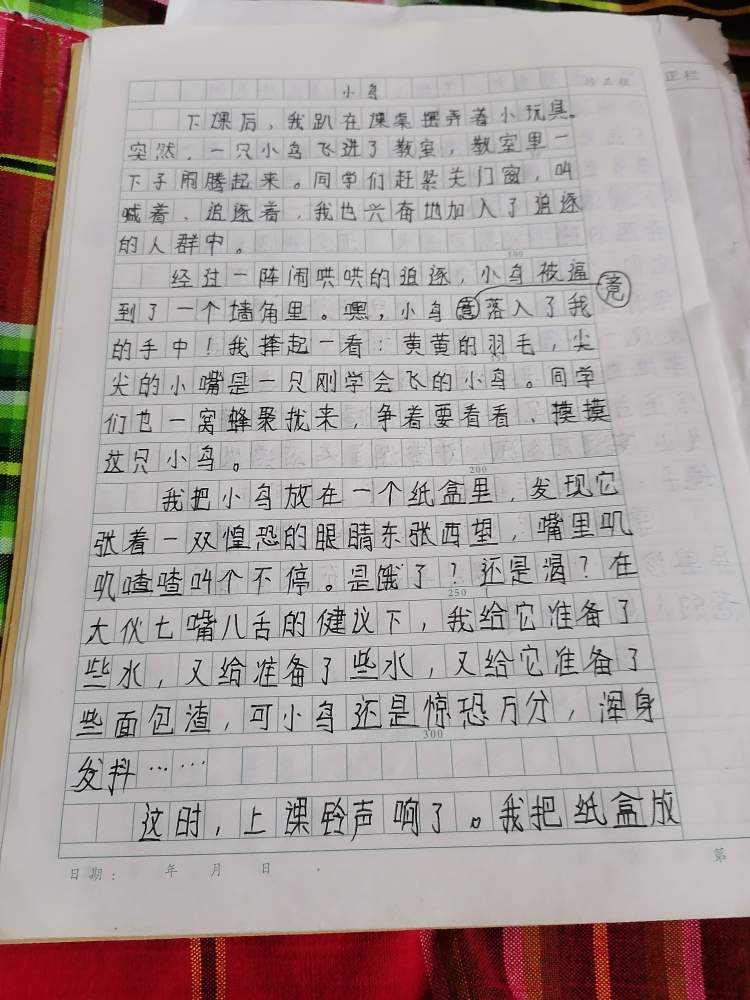 小鸟
下课后，我趴在课桌摆弄着小玩具。
突然，一只小鸟飞进了教室，教室里一
下子闹腾起来。同学们赶紧关门窗，叫
喊着、追逐着，我也兴奋地加入了追逐
的人群中。
100
经过一阵闹哄哄的追逐，小鸟被逼
到了一个墙角里。嘿，小鸟竟落入了我
竟
的手中！我捧起一看：黄黄的羽毛，尖
尖的小嘴是一只刚学会飞的小鸟。同学
们也一窝蜂聚拢来，争着要看看、摸摸
这只小鸟。
200
我把小鸟放在一个纸盒里，发现它
张着一双惶恐的眼睛东张西望，嘴里叽
叽喳喳叫个不停。是饿了？还是渴？在
250
大伙七嘴八舌的健议下，我给它准备了
些水，又给准备了些水，又给它准备了
些面包渣，可小鸟还是惊恐万分，浑身
300
发抖……
这时，上课铃声响了。我把纸盒放
日期： 年 月 日
第
正栏